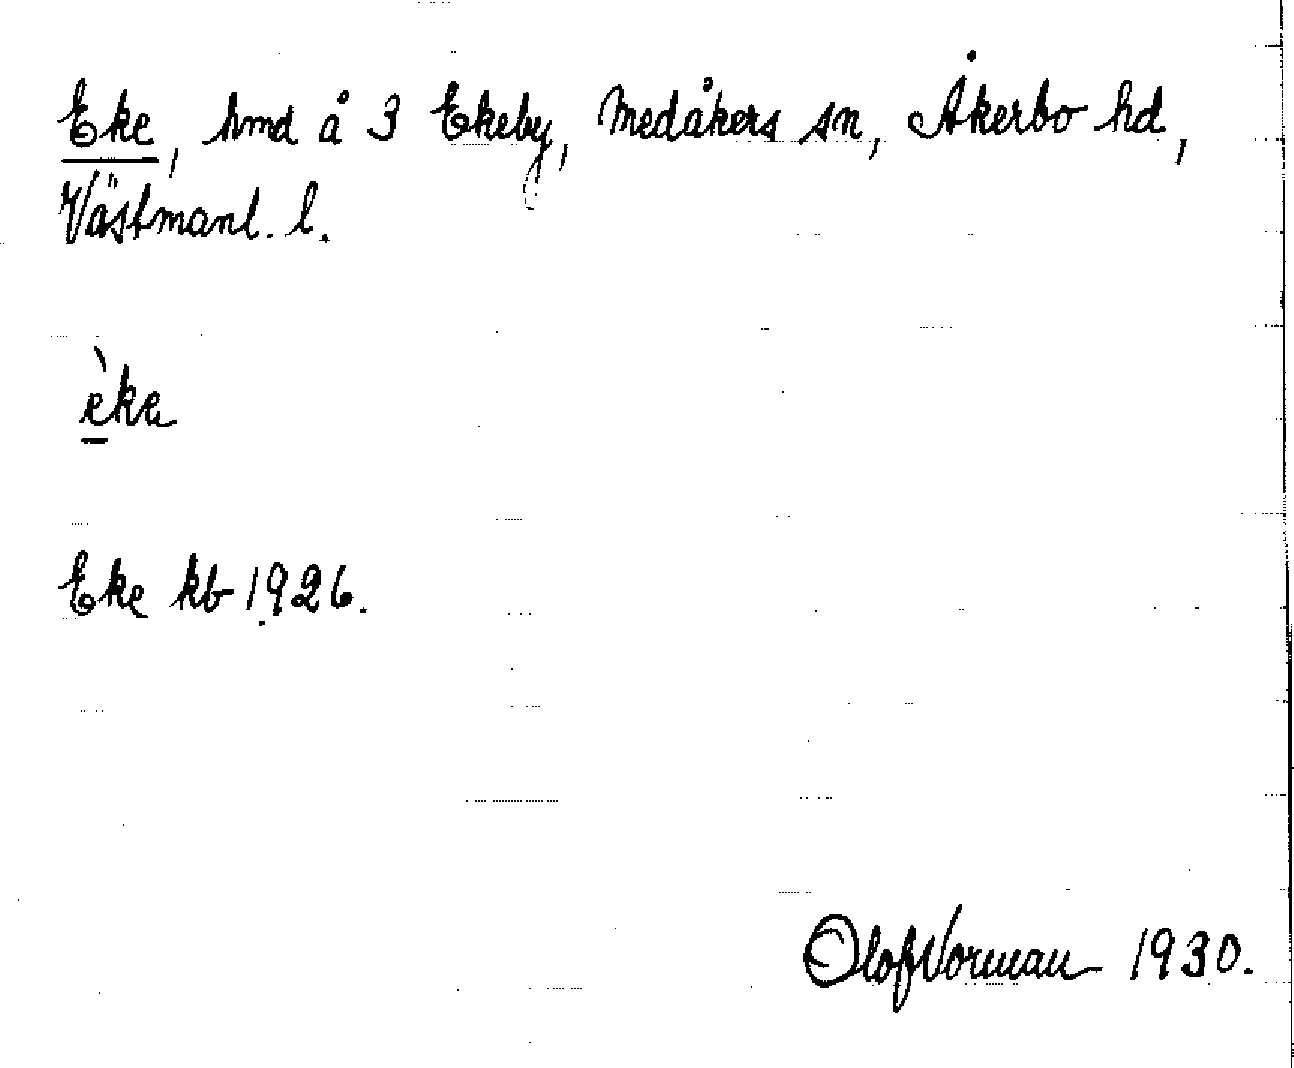 Eke, hmd å 3 Ekeby, Medåkers sn, Åkerbo hd,
Västmanl. l.
èke
Eke kb 1926.
Olof Vorman 1930.